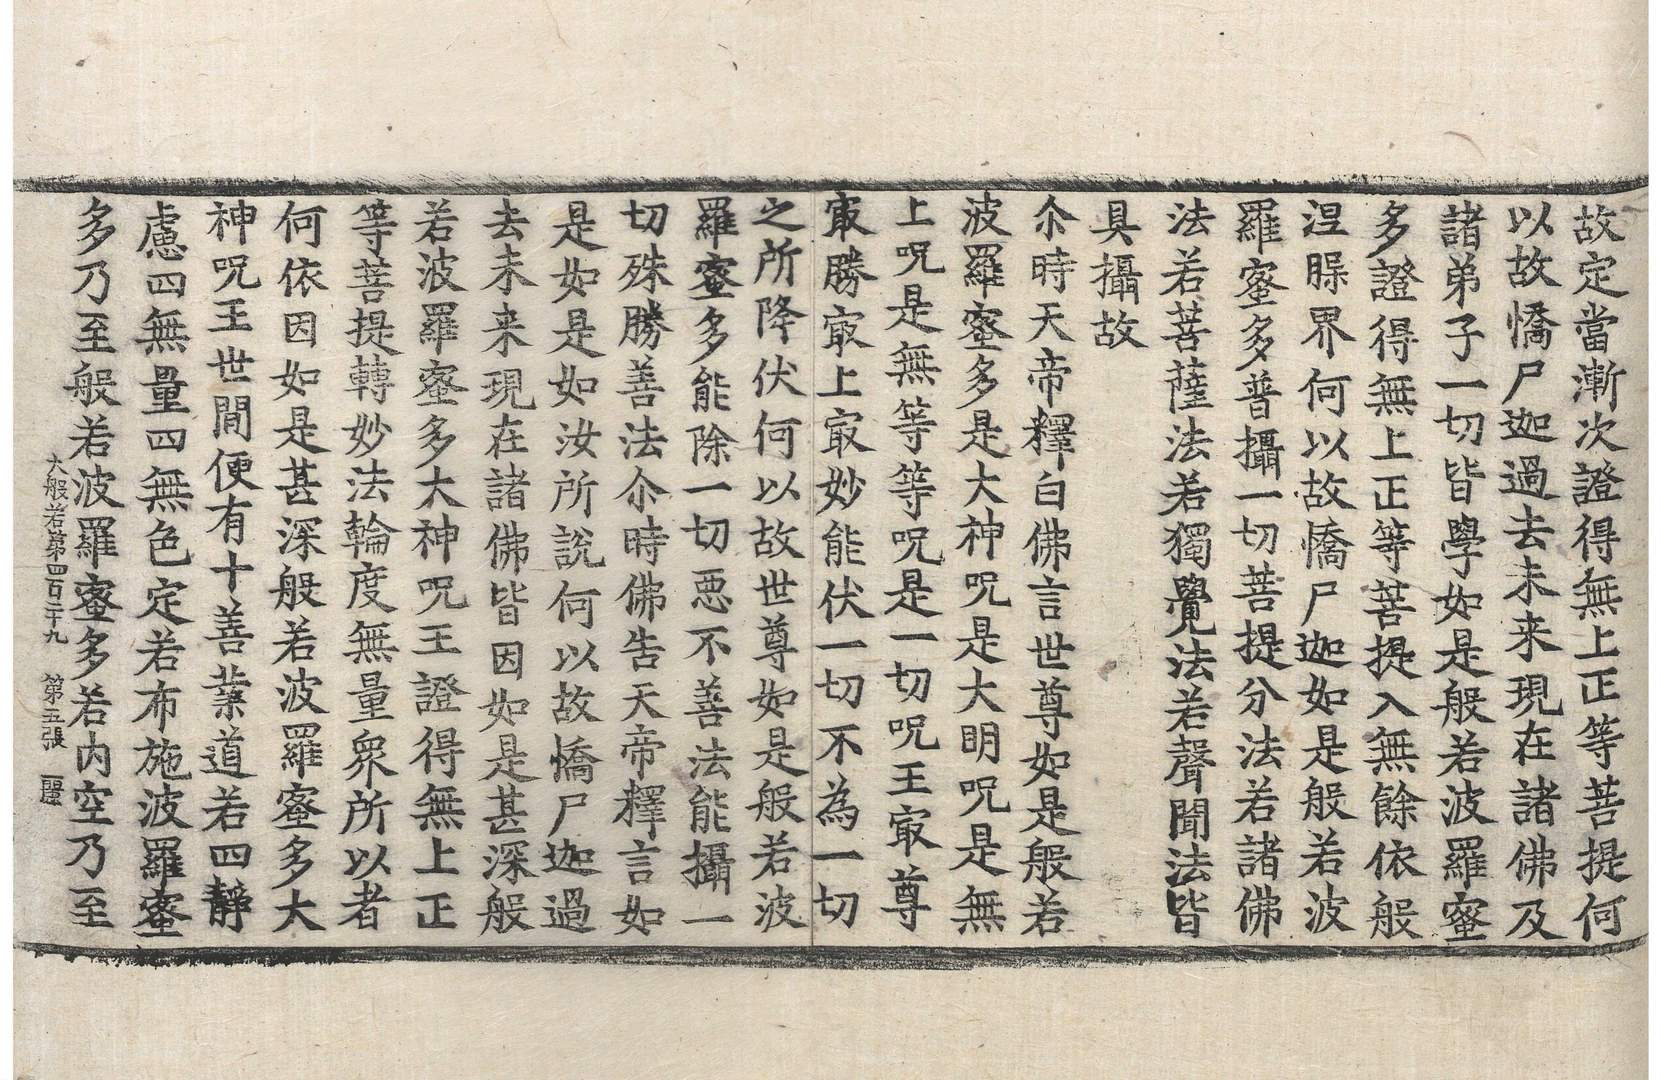 故定當漸次證得無上正等菩提何
以故憍尸迦過去未来現在諸佛及
諸弟子一切皆學如是般若波羅蜜
多證得無上正等菩提入無餘依般
涅槃界何以故憍尸迦如是般若波
羅蜜多普攝一切菩提分法若諸佛
法若菩薩法若獨覺法若聲聞法皆
具攝故
尒時天帝釋白佛言世尊如是般若
波羅蜜多是大神呪是大明呪是無
上呪是無等等呪是一切呪王冣尊
冣勝冣上冣妙能伏一切不為一切
之所降伏何以故世尊如是般若波
羅蜜多能除一切惡不善法能攝一
切殊勝善法尒時佛告天帝釋言如
是如是如汝所說何以故憍尸迦過
去未来現在諸佛皆因如是甚深般
若波羅蜜多大神呪王證得無上正
等菩提轉妙法輪度無量衆所以者
何依因如是甚深般若波羅蜜多大
神呪王世間便有十善業道若四靜
慮四無量四無色定若布施波羅蜜
多乃至般若波羅蜜多若內空乃至
大般若第四百二十九 第五張 麗